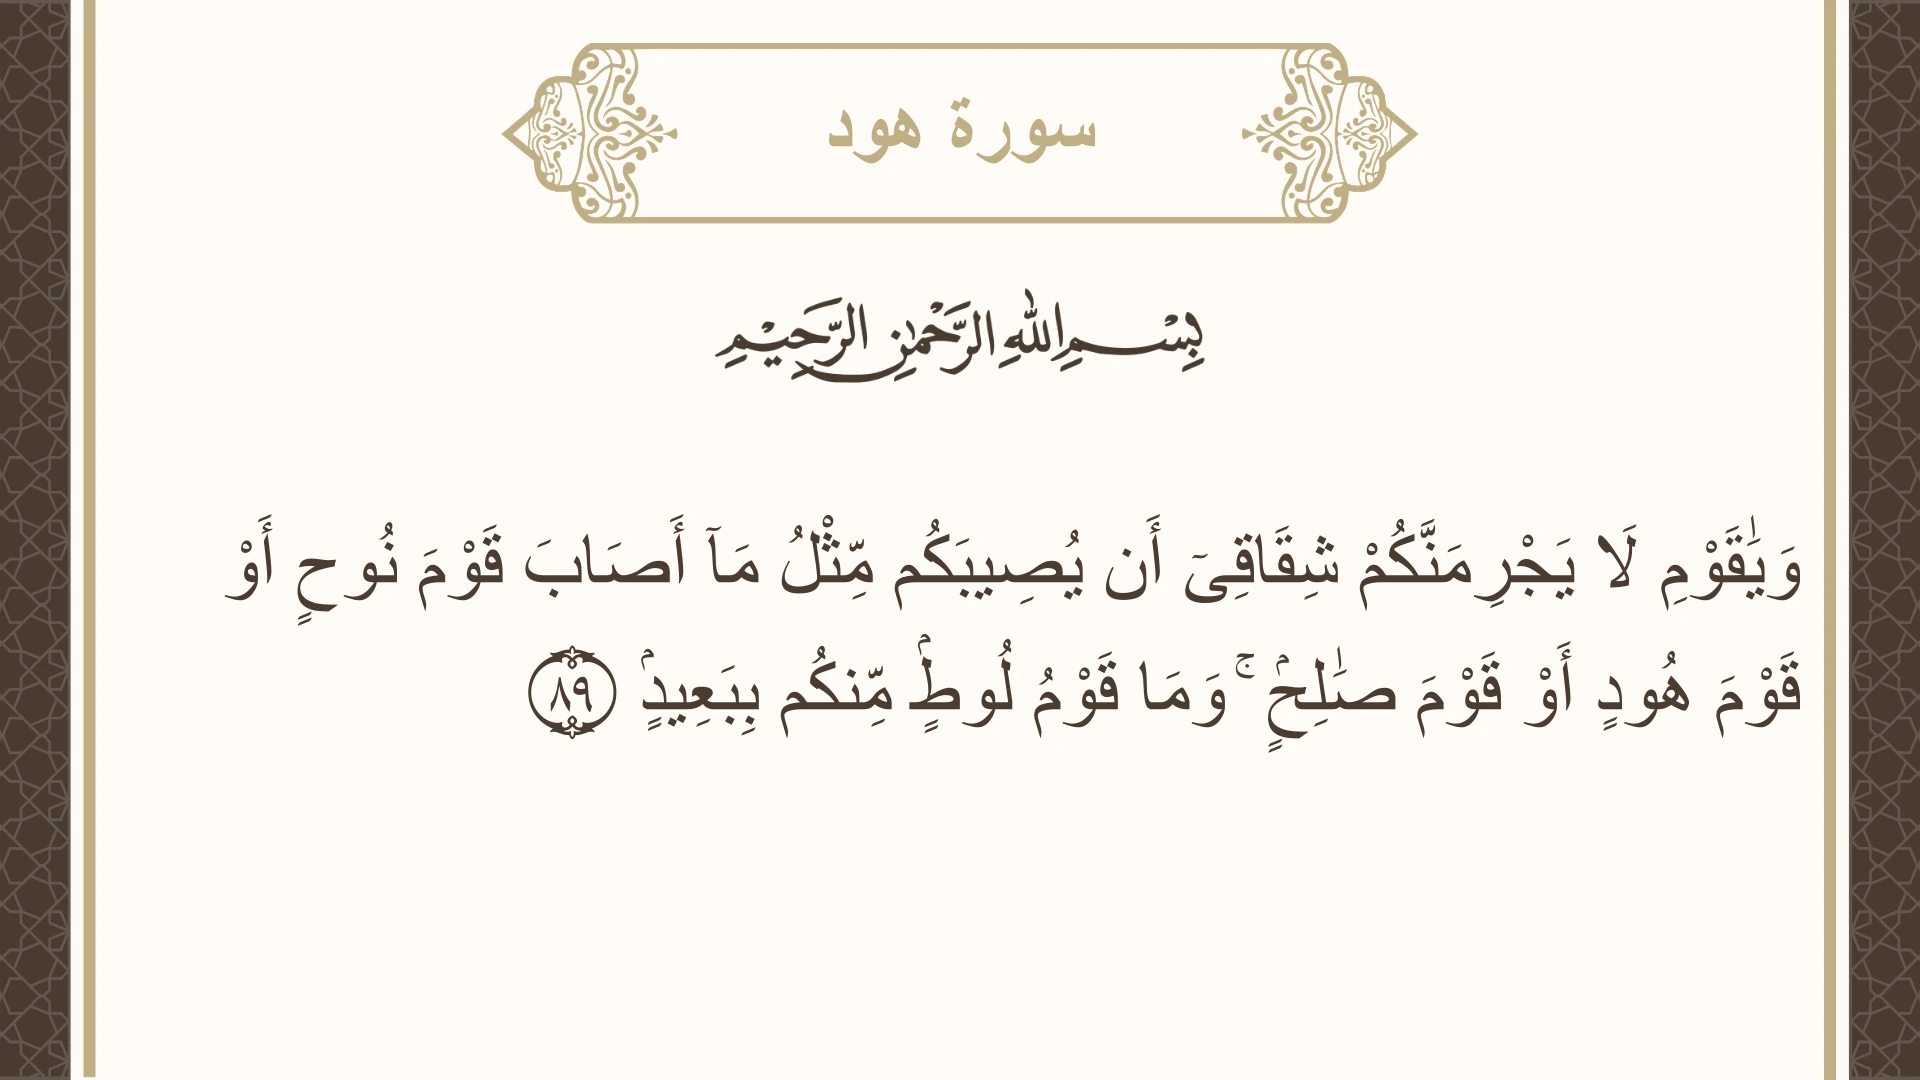 سورة هود
بِسْمِ اللهِ الرَّحْمٰنِ الرَّحِيْمِ
وَيَٰقَوْمِ لَا يَجْرِمَنَّكُمْ شِقَاقِىٓ أَن يُصِيبَكُم مِّثْلُ مَآ أَصَابَ قَوْمَ نُوحٍ أَوْ
قَوْمَ هُودٍ أَوْ قَوْمَ صَٰلِحٍۢ ۚ وَمَا قَوْمُ لُوطٍۢ مِّنكُم بِبَعِيدٍۢ ٨٩